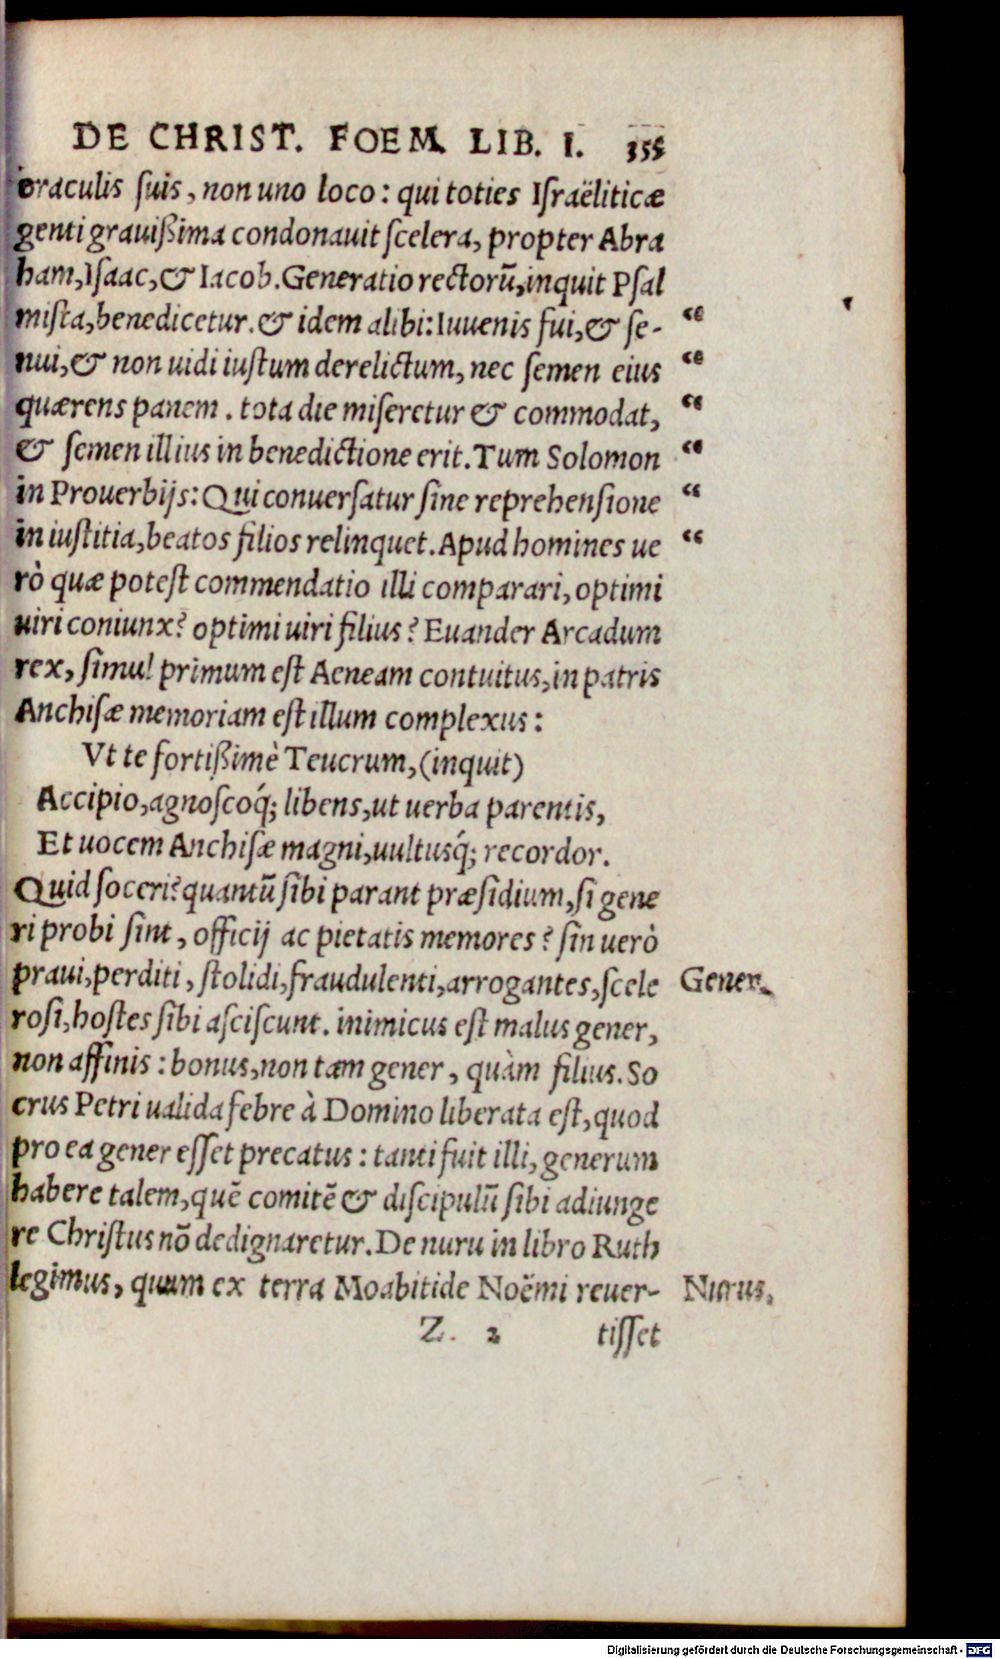 DE CHRIST. FOEM. LIB. I. 355
oraculis suis, non uno loco: qui toties Israëliticæ
genti grauißima condonauit scelera, propter Abra
ham, Isaac, & Iacob. Generatio rectorũ, inquit Psal
mista, benedicetur. & idem alibi: Iuuenis fui, & se- “
nui, & non uidi iustum derelictum, nec semen eius “
quærens panem. tota die miseretur & commodat, “
& semen illius in benedictione erit. Tum Solomon “
in Prouerbijs: Qui conuersatur sine reprehensione “
in iustitia, beatos filios relinquet. Apud homines ue “
rò quæ potest commendatio illi comparari, optimi
uiri coniunx? optimi uiri filius? Euander Arcadum
rex, simul primum est Aeneam contuitus, in patris
Anchisæ memoriam est illum complexus:
Vt te fortißimè Teucrum, (inquit)
Accipio, agnoscoq́; libens, ut uerba parentis,
Et uocem Anchisæ magni, uultusq́; recordor.
Quid soceri? quantũ sibi parant præsidium, si gene
ri probi sint, officij ac pietatis memores? sin uerò
praui, perditi, stolidi, fraudulenti, arrogantes, scele Gener.
rosi, hostes sibi asciscunt. inimicus est malus gener,
non affinis: bonus, non tam gener, quàm filius. So
crus Petri ualida febre à Domino liberata est, quod
pro ea gener esset precatus: tanti fuit illi, generum
habere talem, quẽ comitẽ & discipulũ sibi adiunge
re Christus nõ dedignaretur. De nuru in libro Ruth
legimus, quum ex terra Moabitide Noëmi reuer- Nurus.
Z. 2 tisset
Digitalisierung gefördert durch die Deutsche Forschungsgemeinschaft - DFG